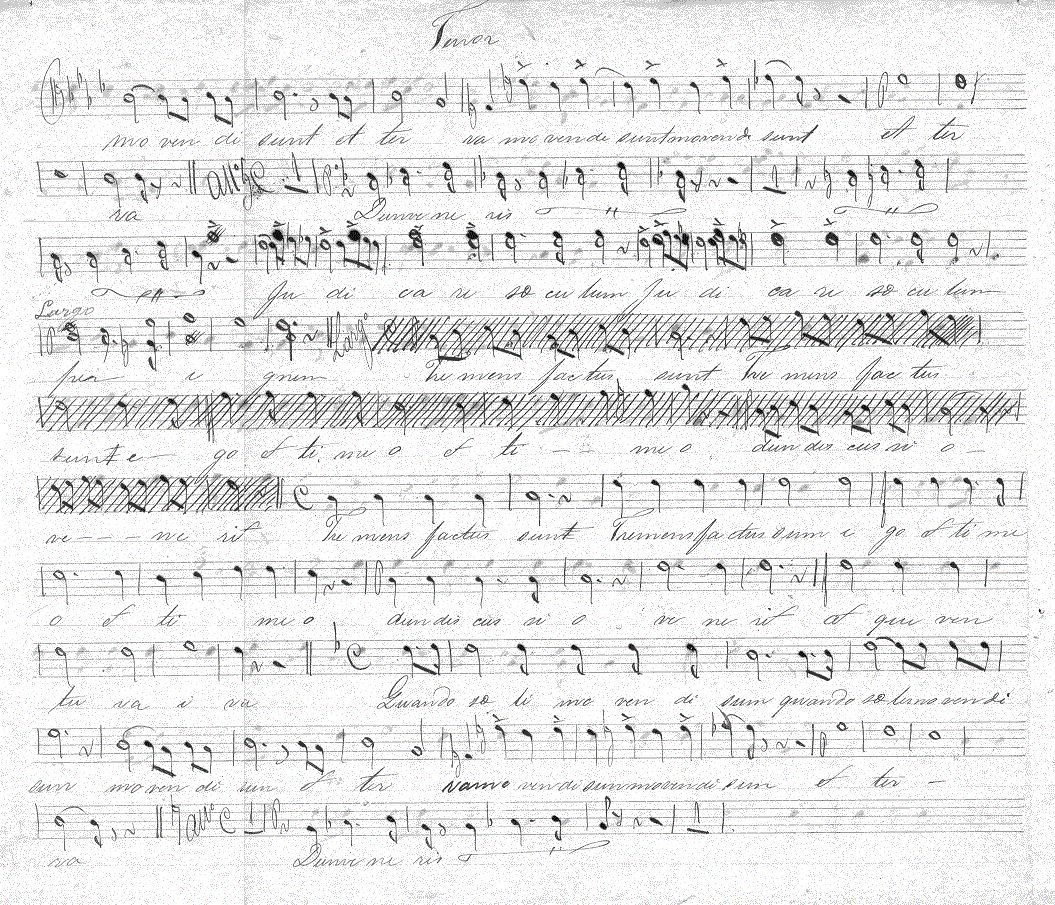 Tenor
mo ven di sunt et ter ra mo vende sunt movende sunt et ter
ra All° Dum ve ne ris
Ju di ca re sæ cu lum Ju di ca re sæ cu lum
Largo
per i gnem Largo Tre mens factus sunt Tre mens fac tus
sunt e go et ti me o et ti - - me o dum dis cus si o -
ve - - - ne rit Tre mens factus sunt Tremens factus sum e go et ti me
o et ti me o dum dis cus si o ve ne rit at que ven
tu ra i ra Quando cœ li mo ven di sum quando cœli mo ven di
sun mo ven di sun et ter ramo ven di sun movendi sun et ter -
ra All° Dum ve ne ris